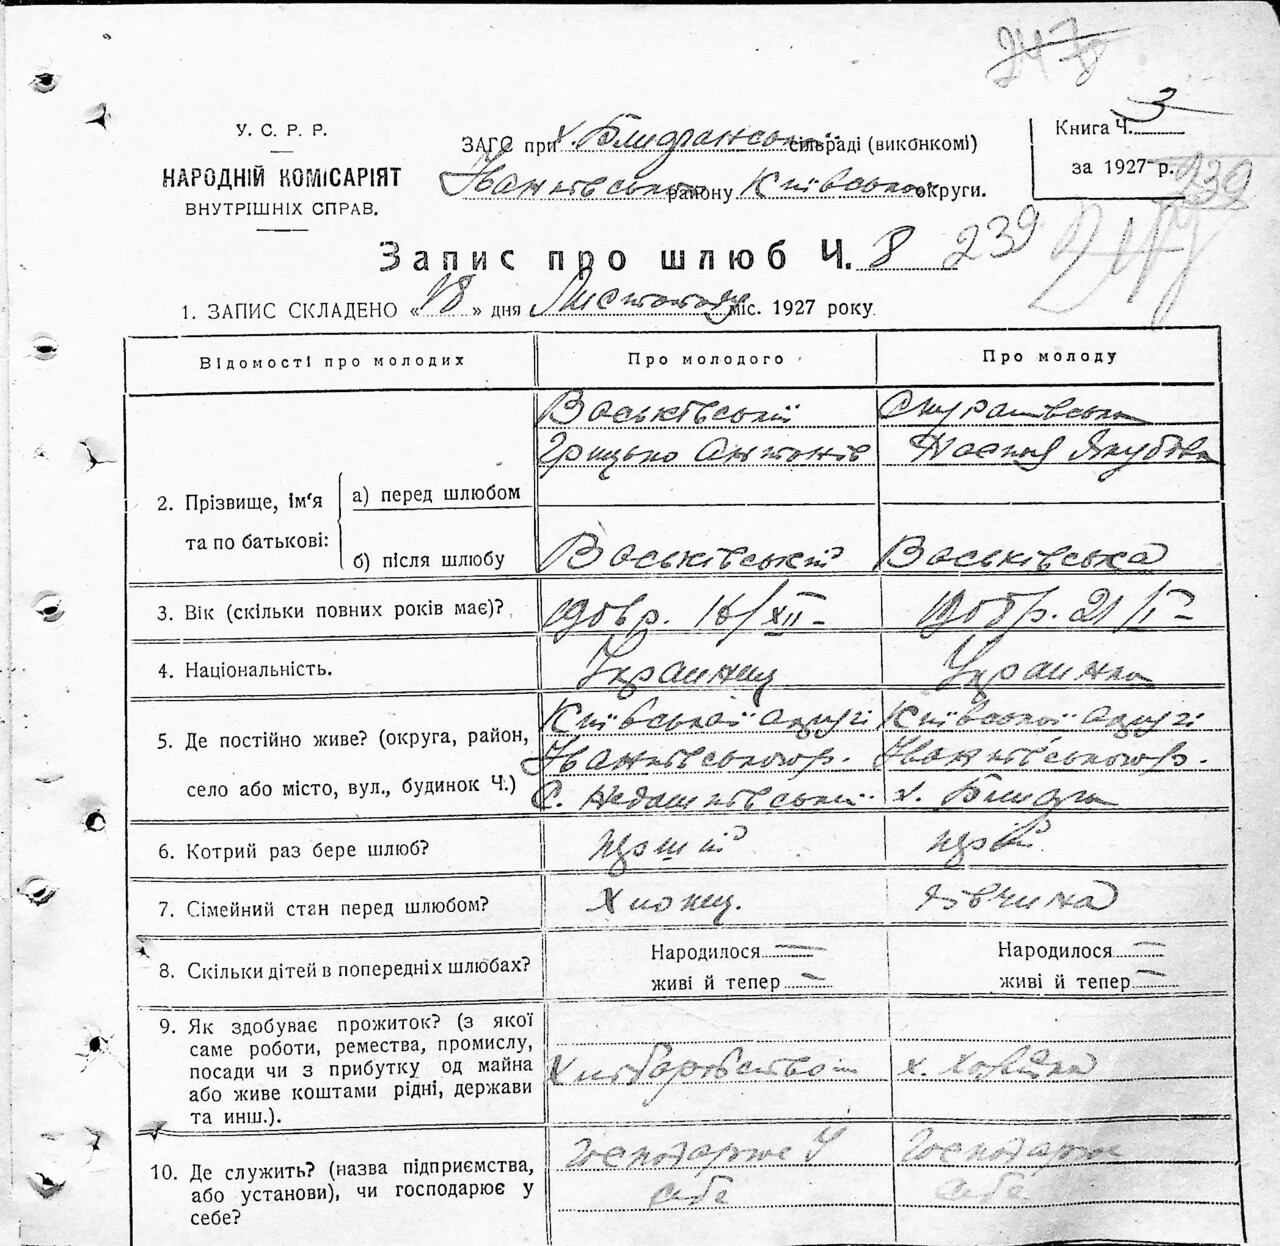 247
У. С. Р. Р.
НАРОДНІЙ КОМІСАРІЯТ
ВНУТРІШНІХ СПРАВ.
ЗАГС при х. сільраді (виконкомі)
Іванківського району Київської округи.
Книга Ч. 3
за 1927 р.
239
Запис про шлюб Ч. 8 239
1. ЗАПИС СКЛАДЕНО «18» дня Листопаду міс. 1927 року.
Відомості про молодих
Про молодого
Про молоду
2. Прізвище, ім'я та по батькові:
а) перед шлюбом
Васьківський
Грицько Антонів
Якубова
б) після шлюбу
Васьківський
Васьківська
3. Вік (скільки повних років має)?
190 р. 18/XII
190 р. 21/I
4. Національність.
Украинец
Украинка
5. Де постійно живе? (округа, район, село або місто, вул., будинок Ч.)
Київської округі
Іванківського р.
с.
Київської округі
Іванківського р.
х.
6. Котрий раз бере шлюб?
перший
7. Сімейний стан перед шлюбом?
Хлопец.
Дівчина
8. Скільки дітей в попередніх шлюбах?
Народилося —
живі й тепер —
Народилося —
живі й тепер —
9. Як здобуває прожиток? (з якої
саме роботи, ремества, промислу,
посади чи з прибутку од майна
або живе коштами рідні, держави
та инш.).
Хліборобством
х.
10. Де служить? (назва підприємства,
або установи), чи господарює у
себе?
Господарює У
себе
Господарює
себе